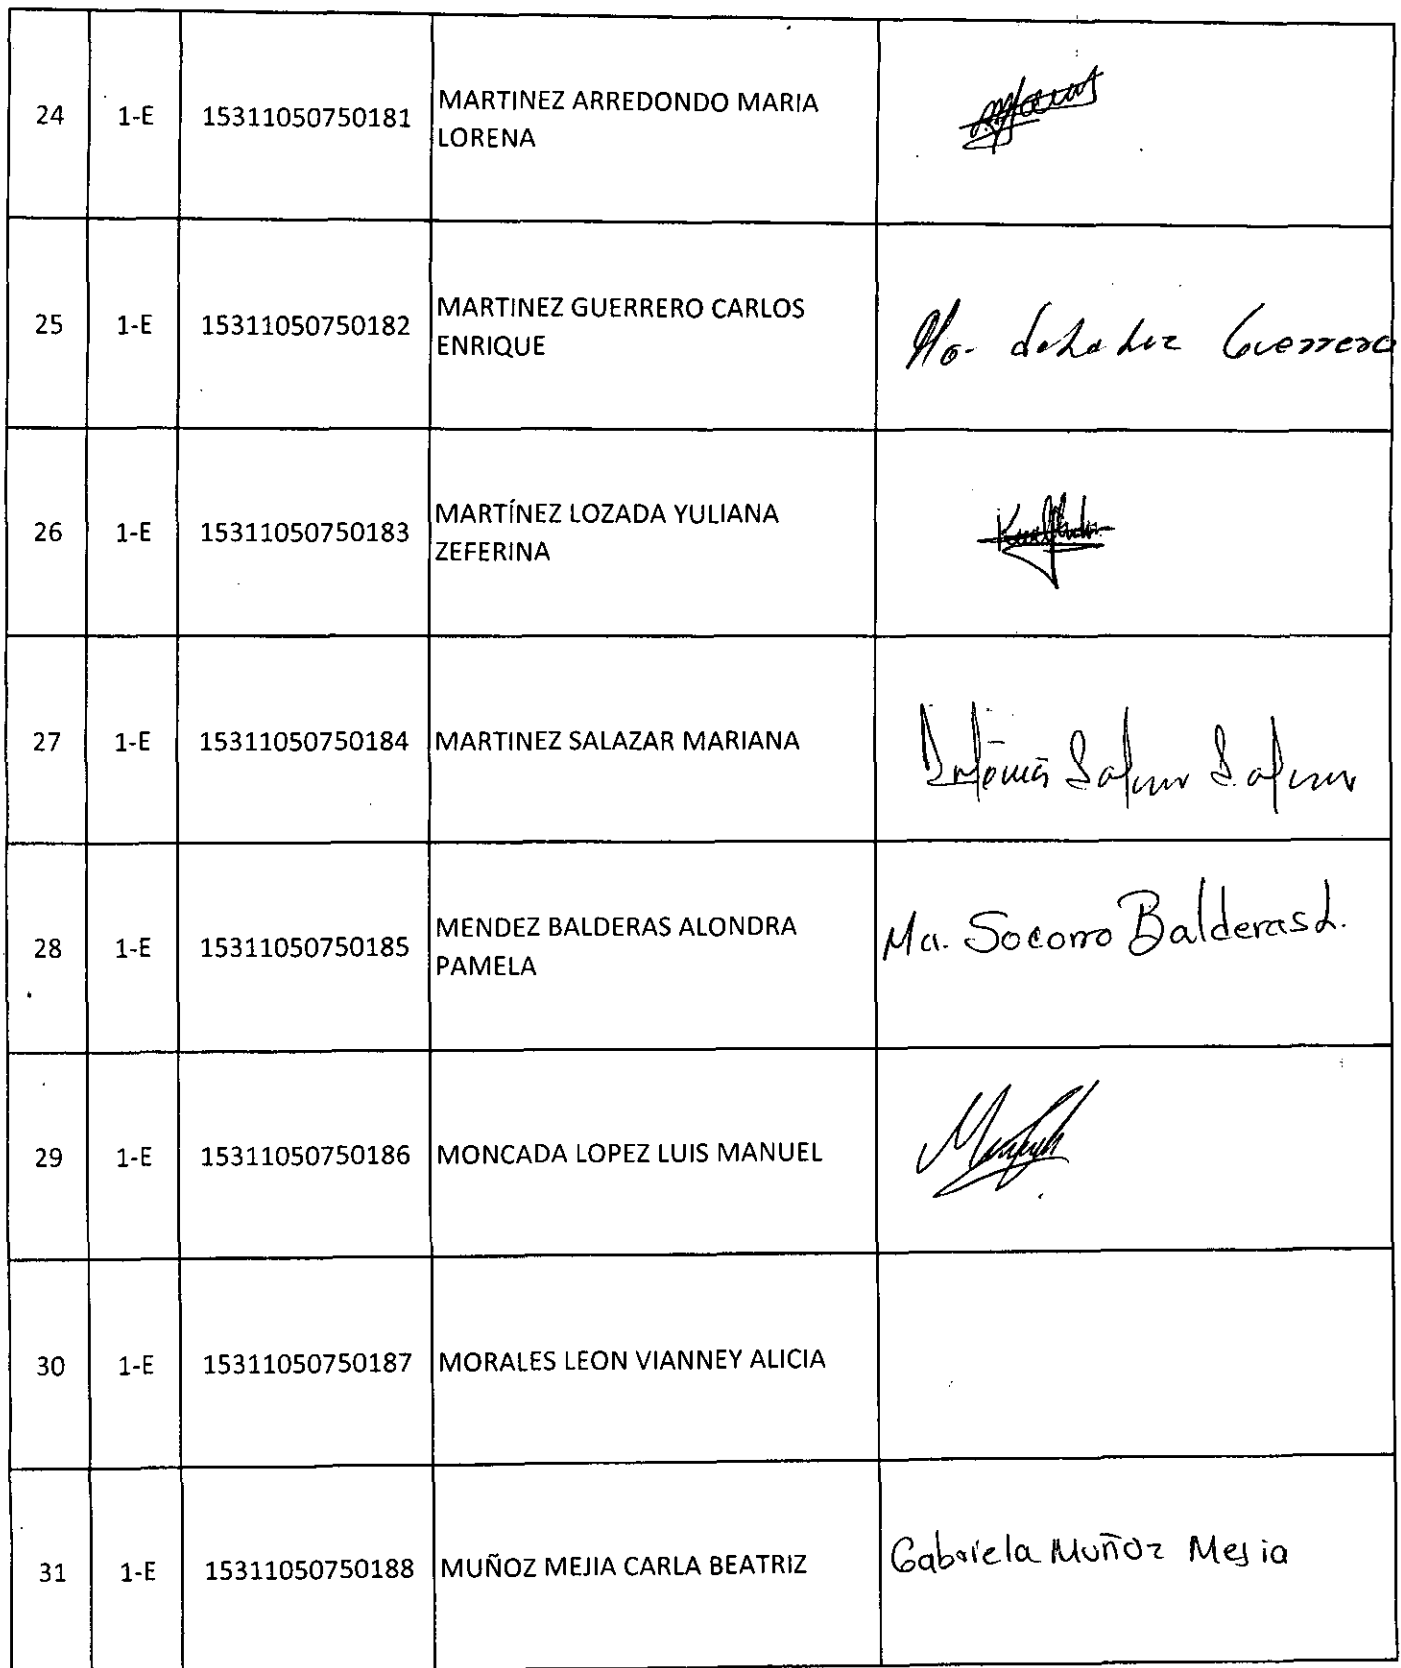 24 1-E 15311050750181 MARTINEZ ARREDONDO MARIA
LORENA
25 1-E 15311050750182 MARTINEZ GUERRERO CARLOS
ENRIQUE
Guerrero
26 1-E 15311050750183 MARTÍNEZ LOZADA YULIANA
ZEFERINA
27 1-E 15311050750184 MARTINEZ SALAZAR MARIANA
28 1-E 15311050750185 MENDEZ BALDERAS ALONDRA
PAMELA
Ma. Socorro Balderas L.
29 1-E 15311050750186 MONCADA LOPEZ LUIS MANUEL
30 1-E 15311050750187 MORALES LEON VIANNEY ALICIA
31 1-E 15311050750188 MUÑOZ MEJIA CARLA BEATRIZ Gabriela Muñoz Mejia